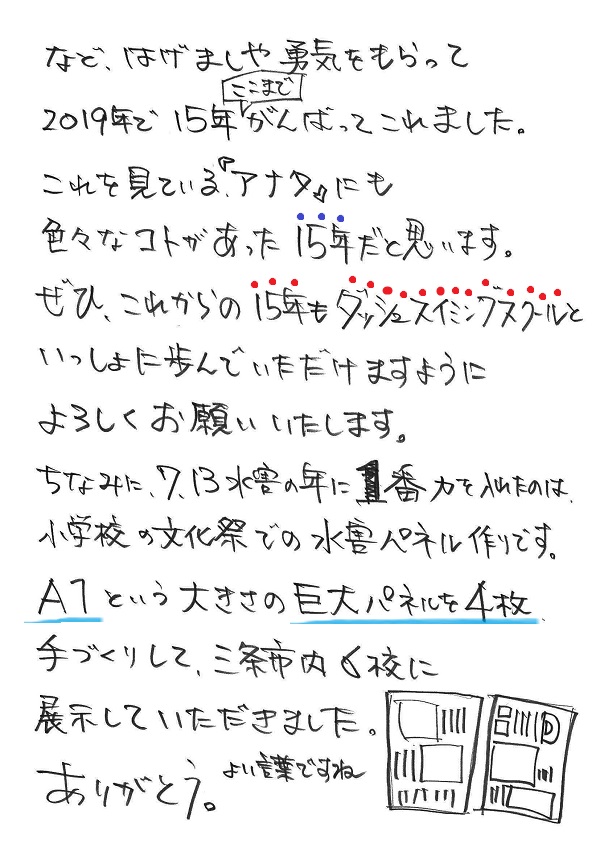 など、はげましや勇気をもらって
ここまで
2019年で15年がんばってこれました。
これを見ている、『アナタ』にも
色々なコトがあった15年だと思います。
ぜひ、これからの15年もダッシュスイミングスクールと
いっしょに歩んでいただけますように
よろしくお願いいたします。
ちなみに、7.13水害の年に1番力を入れたのは、
小学校の文化祭での水害パネル作りです。
A1という大きさの巨大パネルを4枚
手づくりして、三条市内6校に
展示していただきました。
ありがとう。よい言葉ですね